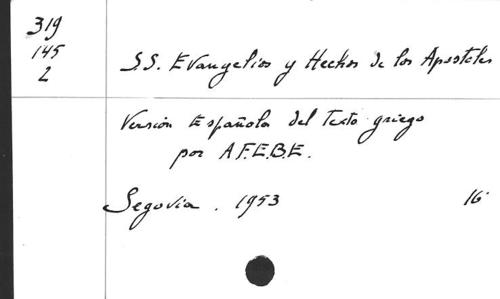 319
145
2
S.S. Evangelios y Hechos de los Apostoles
Versión Española del Texto griego
por A.F.E.B.E.
Segovia. 1953 16